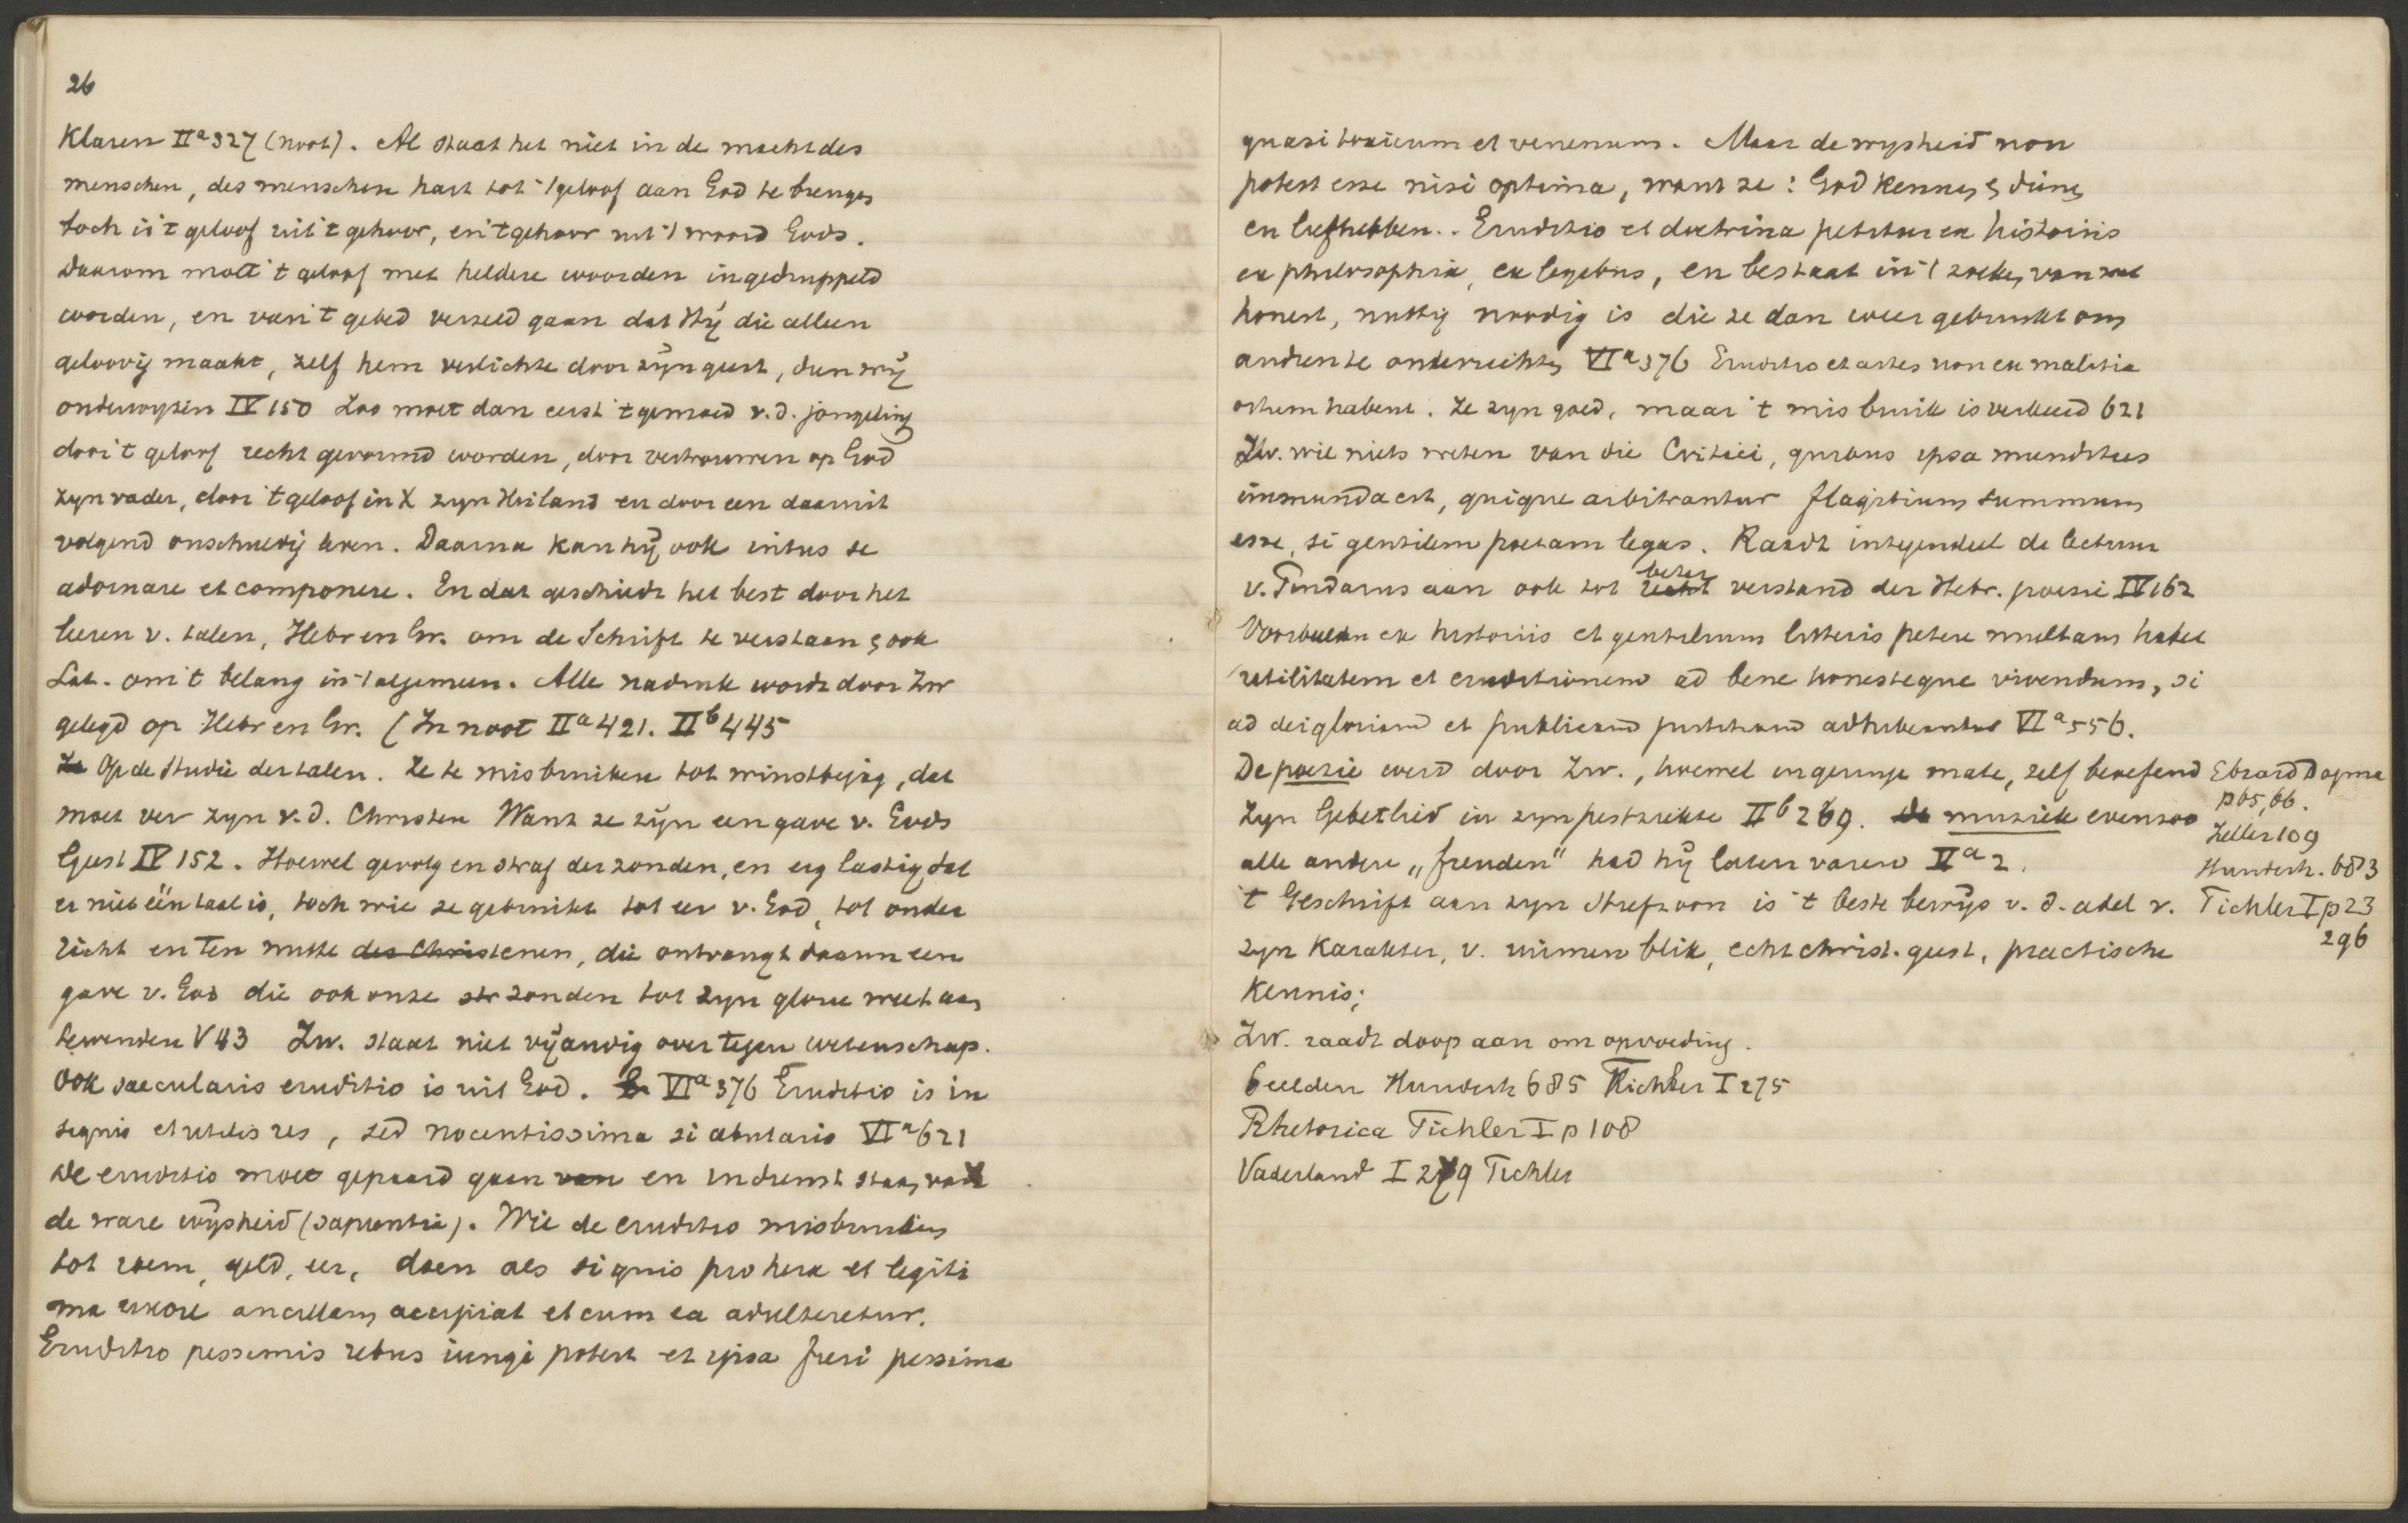 26
Klaren IIa 327 (noot). Al staat het niet in de macht des
menschen, des menschen hart tot 't geloof aan God te brengen
toch is 't geloof uit 't gehoor, en 't gehoor uit 't woord Gods.
Daarom moet 't geloof met heldere woorden ingedruppeld
worden, en van 't gebed verzeld gaan dat Hij die alleen
geloovig maakt, zelf hem verlichte door zijn geest, dien wij
onderwyzen IV 150 Zoo moet dan eerst 't gemoed v.d. jongeling
door 't geloof recht gevormd worden, door vertrouwen op God
zyn vader, door 't geloof in X zyn Heiland en door een daaruit
volgend onschuldig leven. Daarna kan hij ook intus se
adornare et componere. En dat geschiedt het best door het
leeren v. talen, Hebr en Gr. om de Schrift te verstaan & ook
Lat. om 't belang in 't algemeen. Alle nadruk wordt door Zw
gelegd op Hebr en Gr. (In noot IIa 421. IIb 445
Ze Op de studie der talen. Ze te misbruiken tot winstbejag, dat
moet ver zyn v.d. Christen Want ze zijn een gave v. Gods
Geest IV 152. Hoewel gevolg en straf der zonden, en erg lastig dat
er niet één taal is, toch wie ze gebruikt tot eer v. God, tot onder
richt en ten nutte des Christenen, die ontvangt daarin een
gave v. God die ook onze str zonden tot zyn glorie weet aan
tewenden V 43 Zw. staat niet vijandig over tegen wetenschap.
Ook saecularis eruditio is uit God. Er VIa 376 Eruditio is in
signis et utilis res, sed nocentissima si abutaris VIa 621
De eruditio moet gepaard gaan van en in dienst staan van
de ware wijsheid (sapientia). Wie de eruditio misbruiken
tot roem, geld, eer, doen als si quis pro hera et legiti
ma uxore ancillam accipiat et cum ea adulteretur.
Eruditio pessimis rebus iungi potest et ipsa fieri pessima
quasi toxicum et venenum. Maar de wysheid non
potest esse nisi optima, want ze: God kennen & dienen
en liefhebben.. Eruditio et doctrina petitur ex historiis
ex philosophia, ex legibus, en bestaat in 't zoeken van wat
honest, nuttig noodig is die ze dan weer gebruikt om
andren te onderrichten VIa 376 Eruditio et artes non ex malitia
ortum habent. Ze zyn goed, maar 't misbruik is verkeerd 621
Zw. wil niets weten van die Critici, quibus ipsa mundities
immunda est, quique arbitrantur flagitium summum
esse, si gentilem poetam legas. Raadt integendeel de lectuur
v. Pindarus aan ook tot recht beter verstand der Hebr. poezie IV 162
Voorbeelden ex historiis et gentilium litteris petere multam habet
utilitatem et eruditionem ad bene honesteque vivendum, si
ad dei gloriam et publicam justitiam adhibeantur VIa 556.
De poezie werd door Zw., hoewel in geringe mate, zelf beoefend
Zyn Gebetlied in zyn pestziekte IIb 269. De muziek evenzoo
alle andere „freuden" had hij laten varen IIa 2.
't Geschrift aan zyn Stiefzoon is 't beste bewijs v. d. adel v.
zyn Karakter, v. ruimen blik, echt christ. geest, practische
Kennis;
Zw. raadt doop aan om opvoeding.
beelden Hundesh 685 Tichler I 275
Rhetorica Tichler I p 108
Vaderland I 279 Tichler
Ebrard Dogma
p 65, 66.
Zeller 109
Hundesh. 683
Tichler I p 23
296